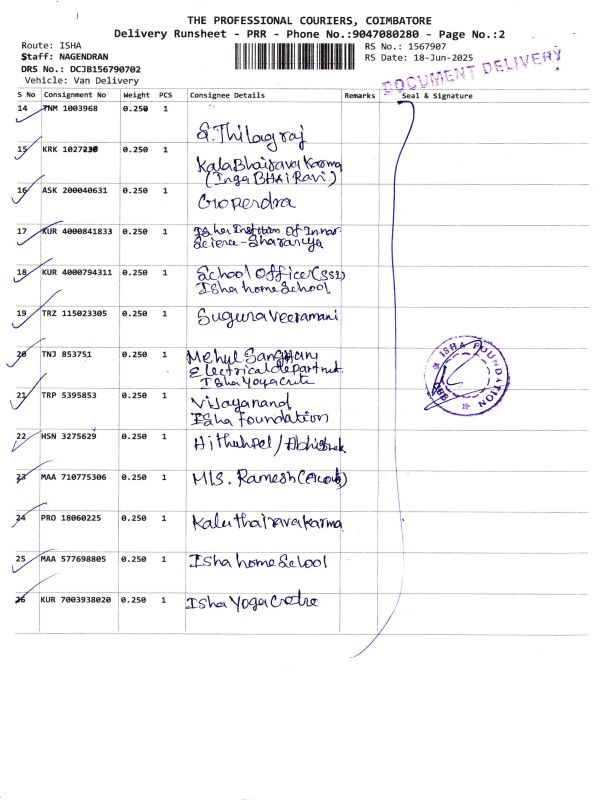 THE PROFESSIONAL COURIERS, COIMBATORE
Delivery Runsheet - PRR - Phone No.:9047080280 - Page No.:2
Route: ISHA
RS No.: 1567907
Staff: NAGENDRAN
RS Date: 18-Jun-2025
DRS No.: DCJB156790702
Vehicle: Van Delivery
DOCUMENT DELIVERY
S No Consignment No Weight PCS Consignee Details Remarks Seal & Signature
14 TNM 1003968 0.250 1
S. Thilagraj
15 KRK 1027230 0.250 1
KalaBhairava Karma
(Inga BHAiRavi)
16 ASK 200040631 0.250 1
Gopendra
17 KUR 4000841833 0.250 1 Isha Institution Of Inner
Science-Sharanya
18 KUR 4000794311 0.250 1 School Officer(SSI)
Isha home School
19 TRZ 115023305 0.250 1 Suguna Veeramani
20 TNJ 853751 0.250 1 Mehul Sanghani
Electrical departmnt.
Isha Yoga
21 TRP 5395853 0.250 1 Vijayanand
Isha Foundation
22 HSN 3275629 0.250 1 /Abhishek
23 MAA 710775306 0.250 1 M/S. Ramesh
24 PRO 18060225 0.250 1
25 MAA 577698805 0.250 1 Isha home School
26 KUR 7003938020 0.250 1 Isha Yoga Centre
ISHA FOUNDATION